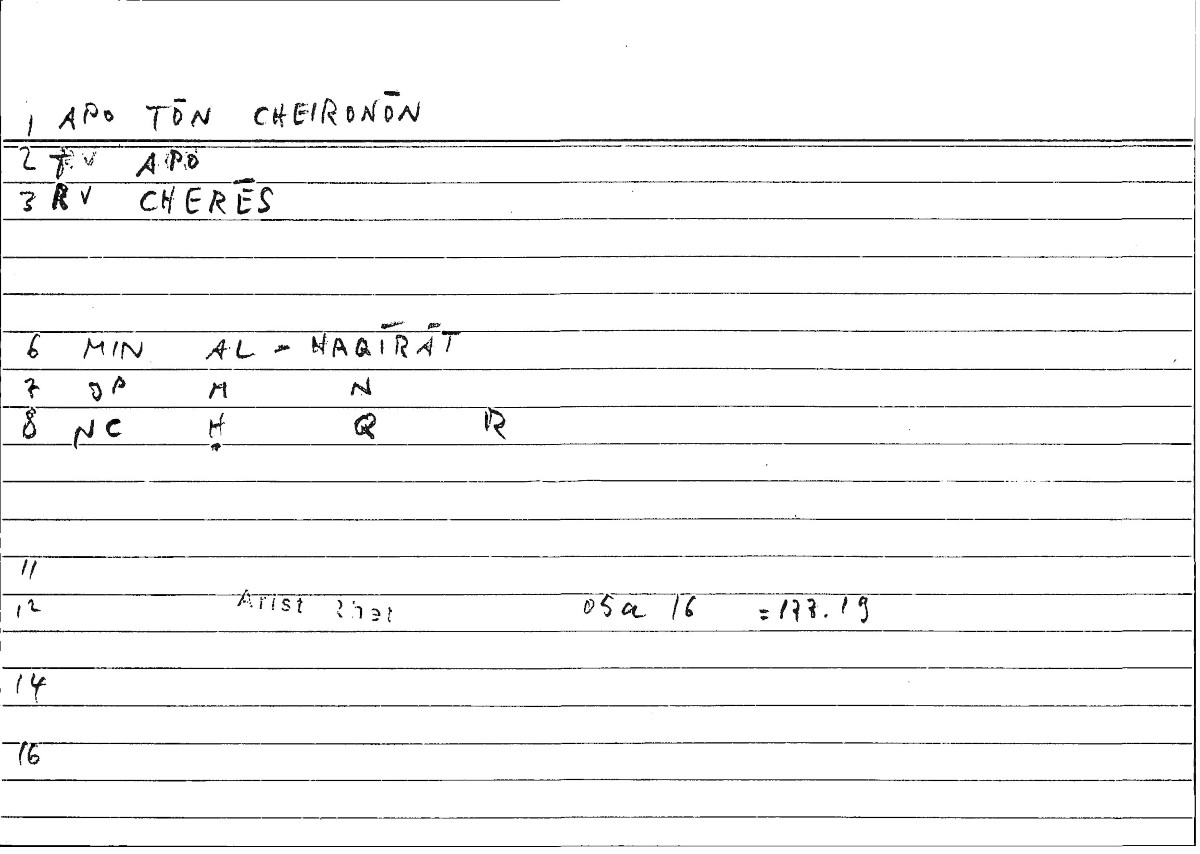 1 APO TŌN CHEIRONŌN
2 RV APO
3 RV CHERĒS
6 MIN AL - HAQĪRĀT
7 OP M N
8 NC Ḥ Q R
11
12 Arist Rhet 05a 16 = 177.19
14
16